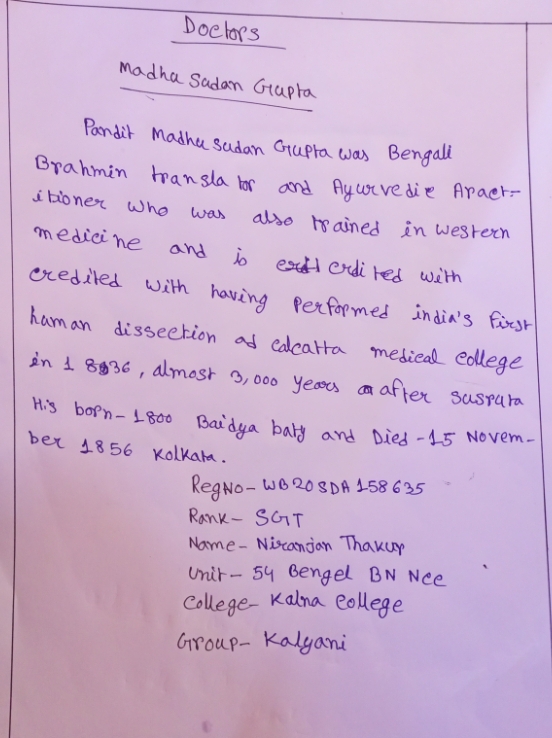 Doctors
Madhu Sudan Gupta
Pandit Madhu sudan Gupta was Bengali
Brahmin translator and Ayurvedic Apract-
itioner who was also trained in western
medicine and is erdited with
credited with having performed india's first
human dissection ad calcatta medical college
in 1836, almost 3,000 years after susruta
His born- 1800 Baidya baty and Died -15 Novem-
ber 1856 Kolkata.
RegNo- WB20SDA158635
Rank- SGT
Name- Niranjan Thakur
Unit- 54 Bengel BN Ncc
College- Kalna College
Group- Kalyani